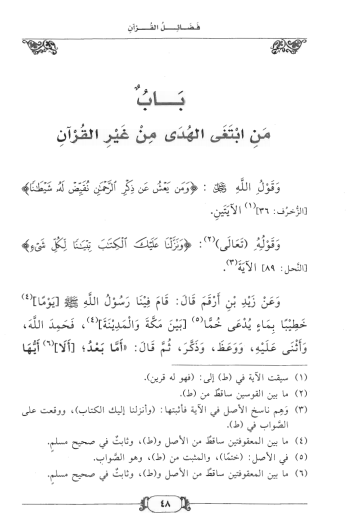 فَضَائِلُ القُرْآنِ
بَابٌ
مَنِ ابْتَغَى الهُدَى مِنْ غَيْرِ القُرْآنِ
وَقَوْلُ اللَّهِ ﷻ : ﴿وَمَن يَعْشُ عَن ذِكْرِ الرَّحْمَٰنِ نُقَيِّضْ لَهُ شَيْطَانًا﴾
[الزُّخرُف: ٣٦](١) الآيَتَينِ.
وَقَوْلُهُ (تَعَالَى)(٢): ﴿وَنَزَّلْنَا عَلَيْكَ الْكِتَٰبَ تِبْيَٰنًا لِّكُلِّ شَيْءٍ﴾
[النَّحل: ٨٩] الآيَةَ(٣).
وَعَنْ زَيْدِ بْنِ أَرْقَمَ قَالَ: قَامَ فِيْنَا رَسُوْلُ اللَّهِ ﷺ [يَوْمًا](٤)
خَطِيْبًا بِمَاءٍ يُدْعَى خُمًّا(٥) [بَيْنَ مَكَّةَ وَالْمَدِيْنَةِ](٤)، فَحَمِدَ اللَّهَ،
وَأَثْنَى عَلَيْهِ، وَوَعَظَ، وَذَكَّرَ، ثُمَّ قَالَ: «أَمَّا بَعْدُ؛ [أَلَا](٦) أَيُّهَا
(١) سيقت الآية في (ط) إلى: (فهو له قرين).
(٢) ما بين القوسين ساقطٌ من (ط).
(٣) وَهِم ناسخ الأصل في الآية فأثبتها: (وأنزلنا إليك الكتاب)، ووقعت على
الصَّواب في (ط).
(٤) ما بين المعقوفتين ساقطٌ من الأصل و(ط)، وثابتٌ في صحيح مسلمٍ.
(٥) في الأصل: (ختمًا)، والمثبت من (ط)، وهو الصَّواب.
(٦) ما بين المعقوفتين ساقطٌ من الأصل و(ط)، وثابتٌ في صحيح مسلمٍ.
٤٨